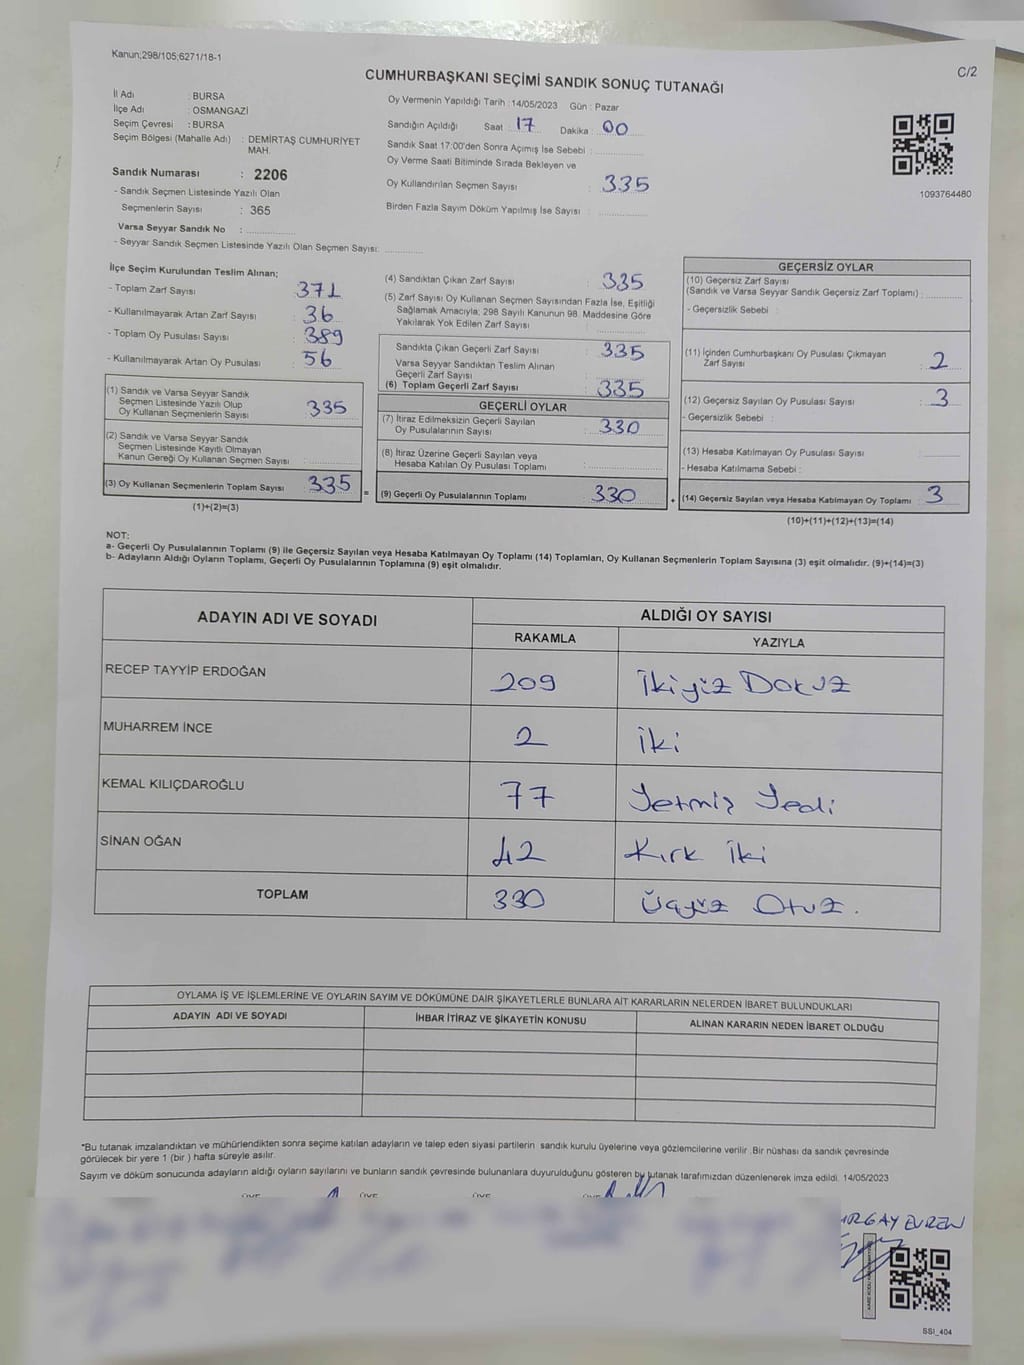 Kanun;298/105;6271/18-1
C/2
CUMHURBAŞKANI SEÇİMİ SANDIK SONUÇ TUTANAĞI
İl Adı : BURSA
İlçe Adı : OSMANGAZİ
Seçim Çevresi : BURSA
Seçim Bölgesi (Mahalle Adı) : DEMİRTAŞ CUMHURİYET
MAH.
Sandık Numarası : 2206
- Sandık Seçmen Listesinde Yazılı Olan
Seçmenlerin Sayısı : 365
Varsa Seyyar Sandık No : ..............
- Seyyar Sandık Seçmen Listesinde Yazılı Olan Seçmen Sayısı: ..............
Oy Vermenin Yapıldığı Tarih : 14/05/2023 Gün : Pazar
Sandığın Açıldığı Saat : 17 Dakika : 00
Sandık Saat 17:00'den Sonra Açımış İse Sebebi : ..............
Oy Verme Saati Bitiminde Sırada Bekleyen ve
Oy Kullandırılan Seçmen Sayısı : 335
Birden Fazla Sayım Döküm Yapılmış İse Sayısı : ..............
1093764480
İlçe Seçim Kurulundan Teslim Alınan;
- Toplam Zarf Sayısı : 371
- Kullanılmayarak Artan Zarf Sayısı : 36
- Toplam Oy Pusulası Sayısı : 389
- Kullanılmayarak Artan Oy Pusulası : 56
(1) Sandık ve Varsa Seyyar Sandık
Seçmen Listesinde Yazılı Olup
Oy Kullanan Seçmenlerin Sayısı : 335
(2) Sandık ve Varsa Seyyar Sandık
Seçmen Listesinde Kayıtlı Olmayan
Kanun Gereği Oy Kullanan Seçmen Sayısı : ..............
(3) Oy Kullanan Seçmenlerin Toplam Sayısı : 335
(1)+(2)=(3)
=
(4) Sandıktan Çıkan Zarf Sayısı : 335
(5) Zarf Sayısı Oy Kullanan Seçmen Sayısından Fazla İse, Eşitliği
Sağlamak Amacıyla; 298 Sayılı Kanunun 98. Maddesine Göre
Yakılarak Yok Edilen Zarf Sayısı : ..............
Sandıkta Çıkan Geçerli Zarf Sayısı : 335
Varsa Seyyar Sandıktan Teslim Alınan
Geçerli Zarf Sayısı : ..............
(6) Toplam Geçerli Zarf Sayısı : 335
GEÇERLİ OYLAR
(7) İtiraz Edilmeksizin Geçerli Sayılan
Oy Pusulalarının Sayısı : 330
(8) İtiraz Üzerine Geçerli Sayılan veya
Hesaba Katılan Oy Pusulası Toplamı : ..............
(9) Geçerli Oy Pusulalarının Toplamı : 330
+
GEÇERSİZ OYLAR
(10) Geçersiz Zarf Sayısı
(Sandık ve Varsa Seyyar Sandık Geçersiz Zarf Toplamı) : ..............
- Geçersizlik Sebebi :
(11) İçinden Cumhurbaşkanı Oy Pusulası Çıkmayan
Zarf Sayısı : 2
(12) Geçersiz Sayılan Oy Pusulası Sayısı : 3
- Geçersizlik Sebebi :
(13) Hesaba Katılmayan Oy Pusulası Sayısı : ..............
- Hesaba Katılmama Sebebi :
(14) Geçersiz Sayılan veya Hesaba Katılmayan Oy Toplamı : 3
(10)+(11)+(12)+(13)=(14)
NOT:
a- Geçerli Oy Pusulalarının Toplamı (9) ile Geçersiz Sayılan veya Hesaba Katılmayan Oy Toplamı (14) Toplamları, Oy Kullanan Seçmenlerin Toplam Sayısına (3) eşit olmalıdır. (9)+(14)=(3)
b- Adayların Aldığı Oyların Toplamı, Geçerli Oy Pusulalarının Toplamına (9) eşit olmalıdır.
ADAYIN ADI VE SOYADI ALDIĞI OY SAYISI
RAKAMLA YAZIYLA
RECEP TAYYİP ERDOĞAN 209 İkiyüz Dokuz
MUHARREM İNCE 2 İki
KEMAL KILIÇDAROĞLU 77 Yetmiş Yedi
SİNAN OĞAN 42 Kırk iki
TOPLAM 330 Üçyüz Otuz.
OYLAMA İŞ VE İŞLEMLERİNE VE OYLARIN SAYIM VE DÖKÜMÜNE DAİR ŞİKAYETLERLE BUNLARA AİT KARARLARIN NELERDEN İBARET BULUNDUKLARI
ADAYIN ADI VE SOYADI İHBAR İTİRAZ VE ŞİKAYETİN KONUSU ALINAN KARARIN NEDEN İBARET OLDUĞU
*Bu tutanak imzalandıktan ve mühürlendikten sonra seçime katılan adayların ve talep eden siyasi partilerin sandık kurulu üyelerine veya gözlemcilerine verilir .Bir nüshası da sandık çevresinde
görülecek bir yere 1 (bir ) hafta süreyle asılır.
Sayım ve döküm sonucunda adayların aldığı oyların sayılarını ve bunların sandık çevresinde bulunanlara duyurulduğunu gösteren bu tutanak tarafımızdan düzenlenerek imza edildi. 14/05/2023
EVREN
SSI_404